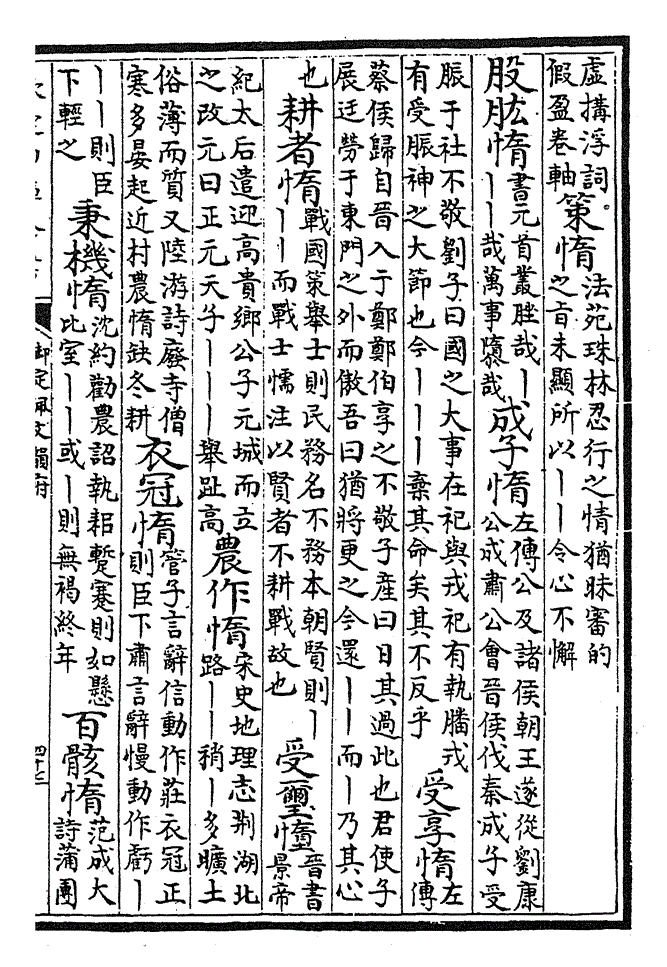 虛搆浮詞。
假盈卷軸
策惰
法苑珠林忍行之情猶昧審的
之旨未顯所以丨丨令心不懈
股肱惰
書元首叢脞哉丨
丨丨哉萬事隳哉
成子惰
左傳公及諸侯朝王遂從劉康
公成肅公會晉侯伐秦成子受
脤于社不敬劉子曰國之大事在祀與戎祀有執膰戎
有受脤神之大節也今丨丨丨棄其命矣其不反乎
受享惰
左
傳
蔡侯歸自晉入于鄭鄭伯享之不敬子產曰日其過此也君使子
展迋勞于東門之外而傲吾曰猶將更之今還丨丨而丨乃其心
也
耕者惰
戰國策舉士則民務名不務本朝賢則丨
丨丨而戰士懦注以賢者不耕戰故也
受璽惰
晉書
景帝
紀太后遣迎高貴鄉公子元城而立
之改元曰正元天子丨丨丨舉趾高
農作惰
宋史地理志荆湖北
路丨丨稍丨多曠土
俗薄而質又陸游詩廢寺僧
寒多晏起近村農惰缺冬耕
衣冠惰
管子言辭信動作莊衣冠正
則臣下肅言辭慢動作虧丨
丨丨則臣
下輕之
秉機惰
沈約勸農詔執耜蹔蹇則如懸
比室丨丨或丨則無褐終年
百骸惰
范成大
骨惰詩蒲團
御定佩文韻府
四十七